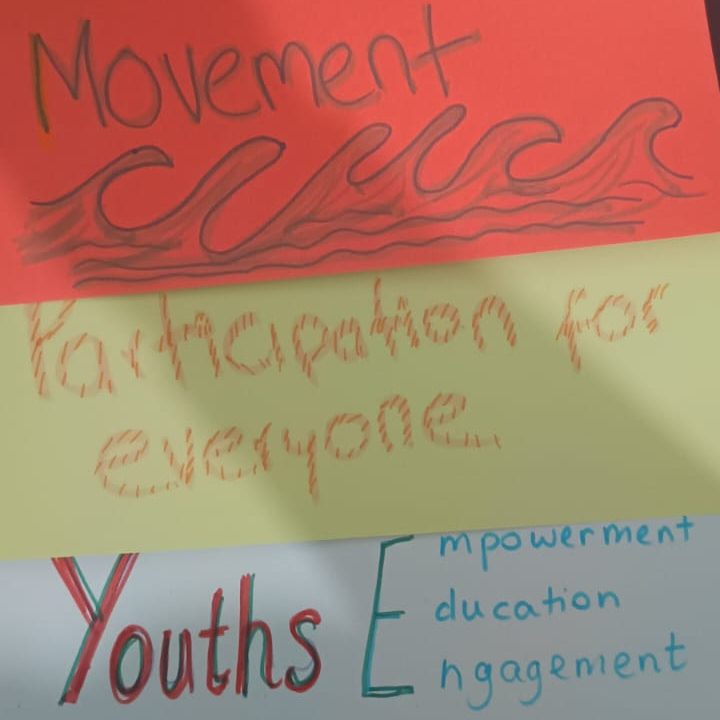 Movement
Participation for
everyone
Youths Empowerment
Education
Engagement